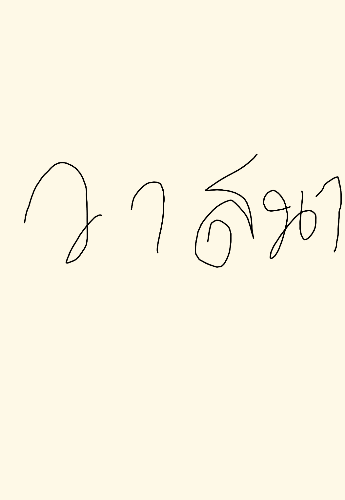 วาสนา